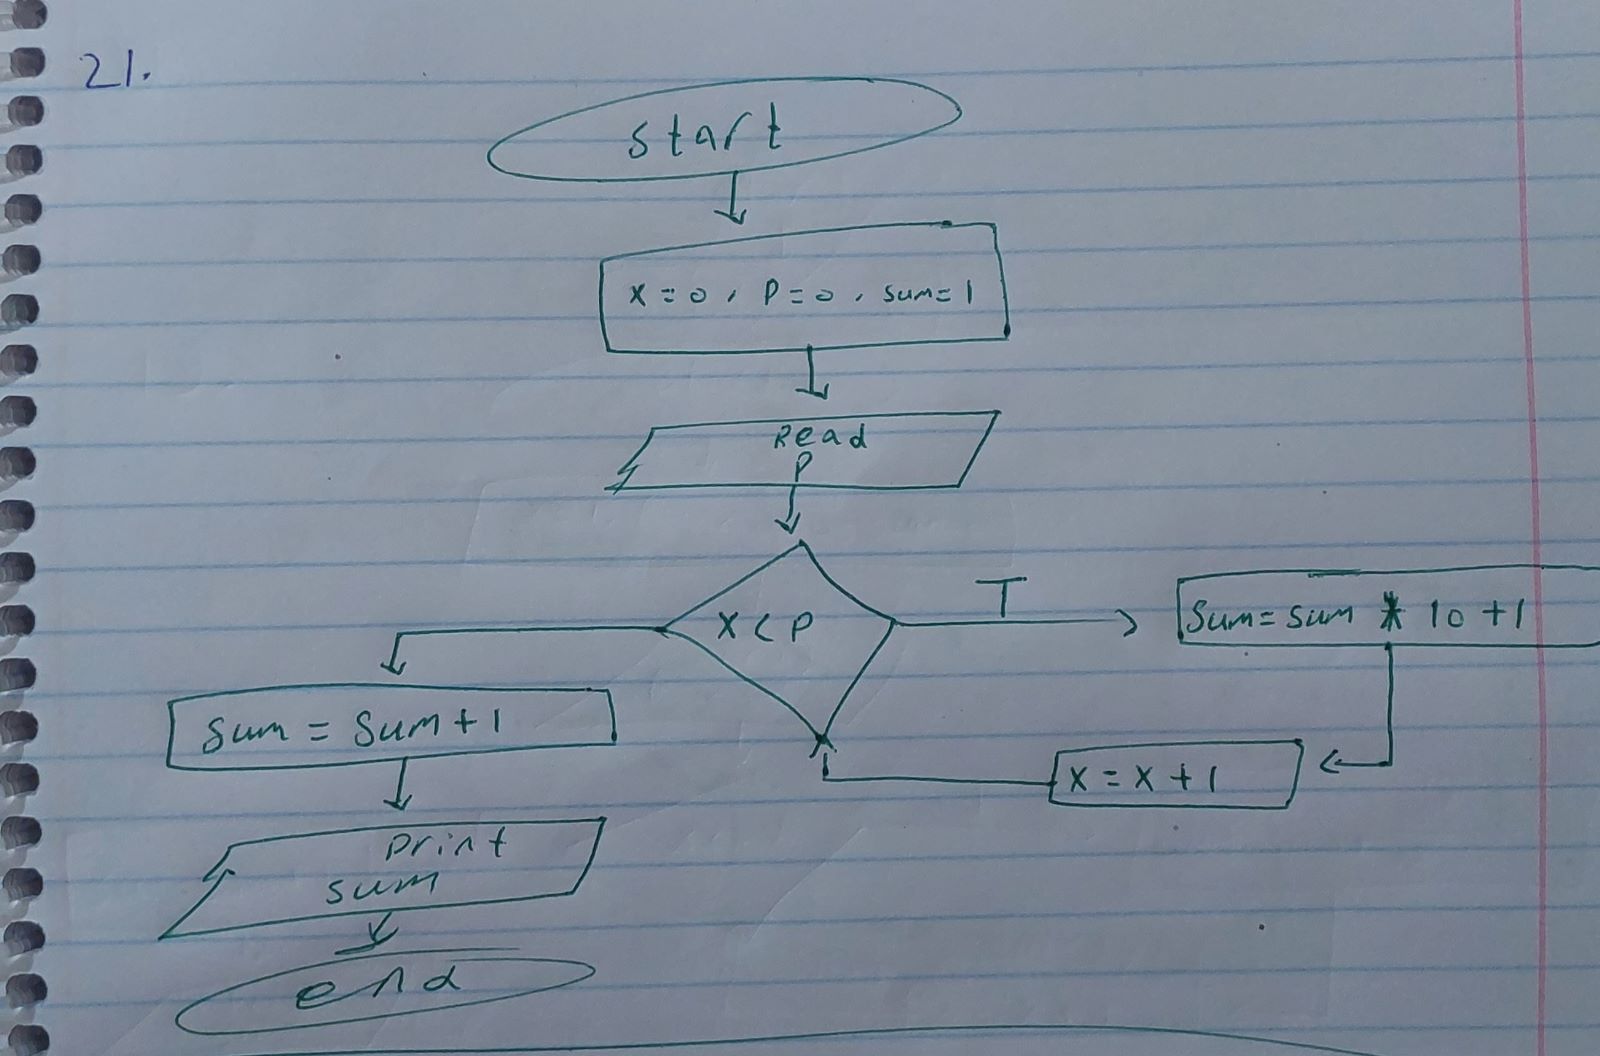 21.
start
X = 0, P = 0, sum = 1
Read
P
X < P
T
Sum = sum * 10 + 1
Sum = Sum + 1
X = X + 1
print
sum
end